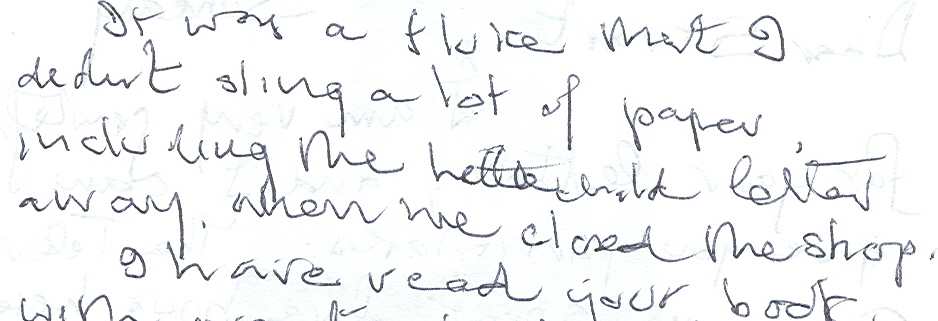 It was a fluke that I
didn't sling a lot of paper,
including the letter
away, when we closed the shop.
I have read your book
with